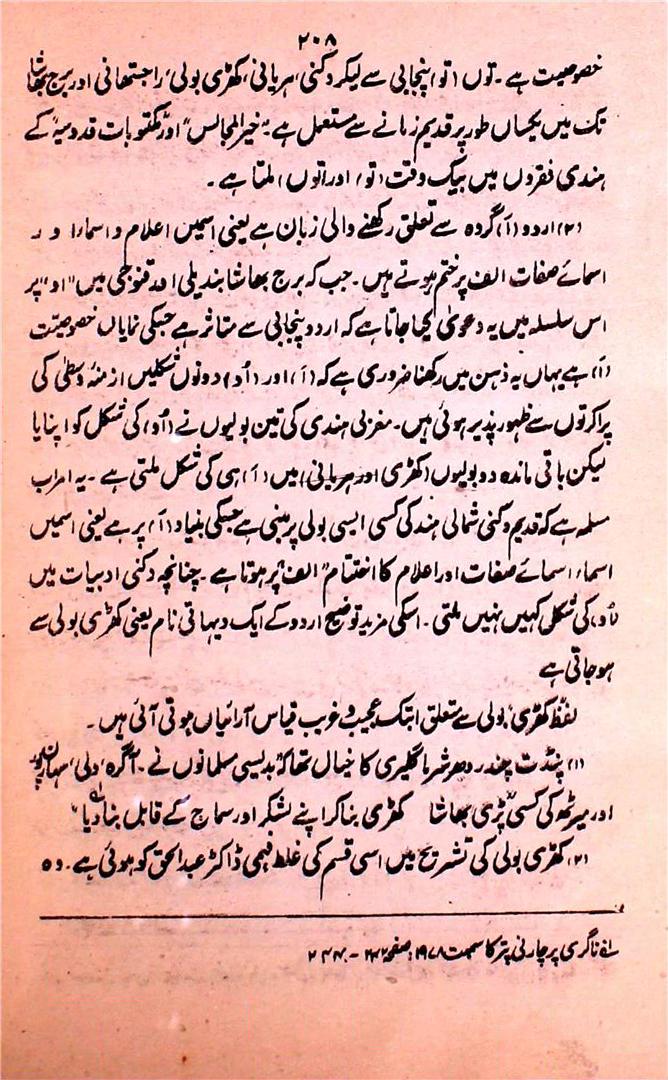 ۲۰۸
خصوصیت ہے۔ توں (تو) پنجابی سے لیکر دکنی، ہریانی، کھڑی بولی، راجستھانی اور برج بھاشا
تک میں یکساں طور پر قدیم زمانے سے مستعمل ہے۔ "خیر المجالس" اور "مکتوبات قدوسیہ" کے
ہندی فقروں میں بیک وقت (تو) اور (توں) ملتا ہے۔
(۲) اردو (آ) گروہ سے تعلق رکھنے والی زبان ہے یعنی اسمیں اعلام و اسماء و
اسمائے صفات الف پر ختم ہوتے ہیں۔ جب کہ برج بھاشا بندیلی اور قنوجی میں "او" پر
اس سلسلہ میں یہ دعویٰ کیا جاتا ہے کہ اردو پنجابی سے متاثر ہے جسکی نمایاں خصوصیت
(آ) ہے یہاں یہ ذہن میں رکھنا ضروری ہے کہ (آ) اور (اُو) دونوں شکلیں ازمنۂ وسطیٰ کی
پراکرتوں سے ظہور پذیر ہوئی ہیں۔ مغربی ہندی کی تین بولیوں نے (اُو) کی شکل کو اپنایا
لیکن باقی ماندہ دو بولیوں (کھڑی اور ہریانی) میں (آ) ہی کی شکل ملتی ہے۔ یہ امر اب
مسلمہ ہے کہ قدیم دکنی شمالی ہند کی کسی ایسی بولی پر مبنی ہے جسکی بنیاد (آ) پر ہے یعنی اسمیں
اسماء اسمائے صفات اور اعلام کا اختتام "الف" پر ہوتا ہے۔ چنانچہ دکنی ادبیات میں
(اُو) کی شکل کہیں نہیں ملتی۔ اسکی مزید توضیح اردو کے ایک دیہاتی نام یعنی کھڑی بولی سے
ہو جاتی ہے
لفظ کھڑی، بولی سے متعلق ابتک عجیب و غریب قیاس آرائیاں ہوتی آئی ہیں۔
(۱) پنڈت چندر دھر شرما گلیری کا خیال تھا کہ "بدیسی مسلمانوں نے۔ آگرہ، دلی، سہارنپور
اور میرٹھ کی کسی "پڑی بھاشا کھڑی بنا کر اپنے لشکر اور سماج کے قابل بنا دیا" لے
(۲) کھڑی بولی کی تشریح میں اسی قسم کی غلط فہمی ڈاکٹر عبدالحق کو ہوئی ہے۔ وہ
لے ناگری پرچارنی پترکا سمت ۱۹۷۸، صفحہ